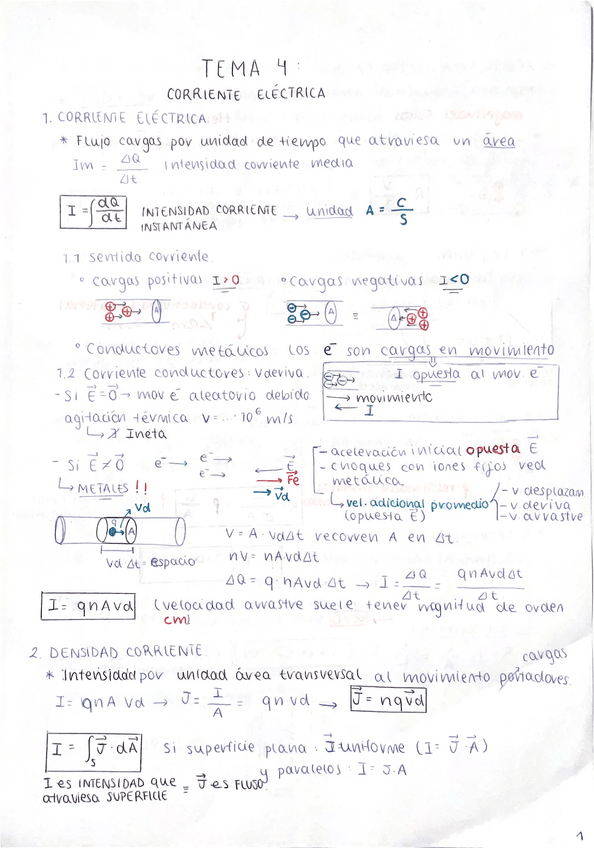 TEMA 4 :
CORRIENTE ELÉCTRICA
1. CORRIENTE ELÉCTRICA
* Flujo cargas por unidad de tiempo que atraviesa un área.
Im = ΔQ / Δt intensidad corriente media
I = ∫ dQ / dt INTENSIDAD CORRIENTE INSTANTÁNEA → unidad A = C / S
1.1 sentido corriente.
° cargas positivas I > 0 ° Cargas negativas I < 0
A A = A
° Conductores metálicos los e⁻ son cargas en movimiento
1.2. Corriente conductores: Vderiva.
I opuesta al mov e⁻
→ movimiento
← I
- Si E⃗ = 0⃗ → mov e⁻ aleatorio debido
agitación térmica v = ... · 10⁶ m/s
↳ ∄ Ineta
- Si E⃗ ≠ 0 e⁻ → e⁻ → e⁻ → ← E⃗
→ Fe
→ Vd
↳ METALES !!
- aceleración inicial opuesta E⃗
- choques con iones fijos red
metálica.
↳ vel. adicional promedio
(opuesta E⃗)
- v desplazam
- v deriva
- v arrastre
Vd
q A
Vd Δt = espacio
V = A · vdΔt recorren A en Δt.
nV = nAvdΔt
ΔQ = q · nAvd · Δt → I = ΔQ / Δt = qnAvdΔt / Δt
I = qnAvd (velocidad arrastre suele tener magnitud de orden
cm)
2. DENSIDAD CORRIENTE.
* Intensidad por unidad área transversal al movimiento cargas portadores.
I = qnA Vd → J = I / A = qn vd → J⃗ = nqv⃗d
I = ∫s J⃗ · dA⃗ Si superficie plana : J⃗ uniforme (I = J⃗ · A⃗)
y paralelos : I = J · A
I es INTENSIDAD que
atraviesa SUPERFICIE = J⃗ es FLUJO
1